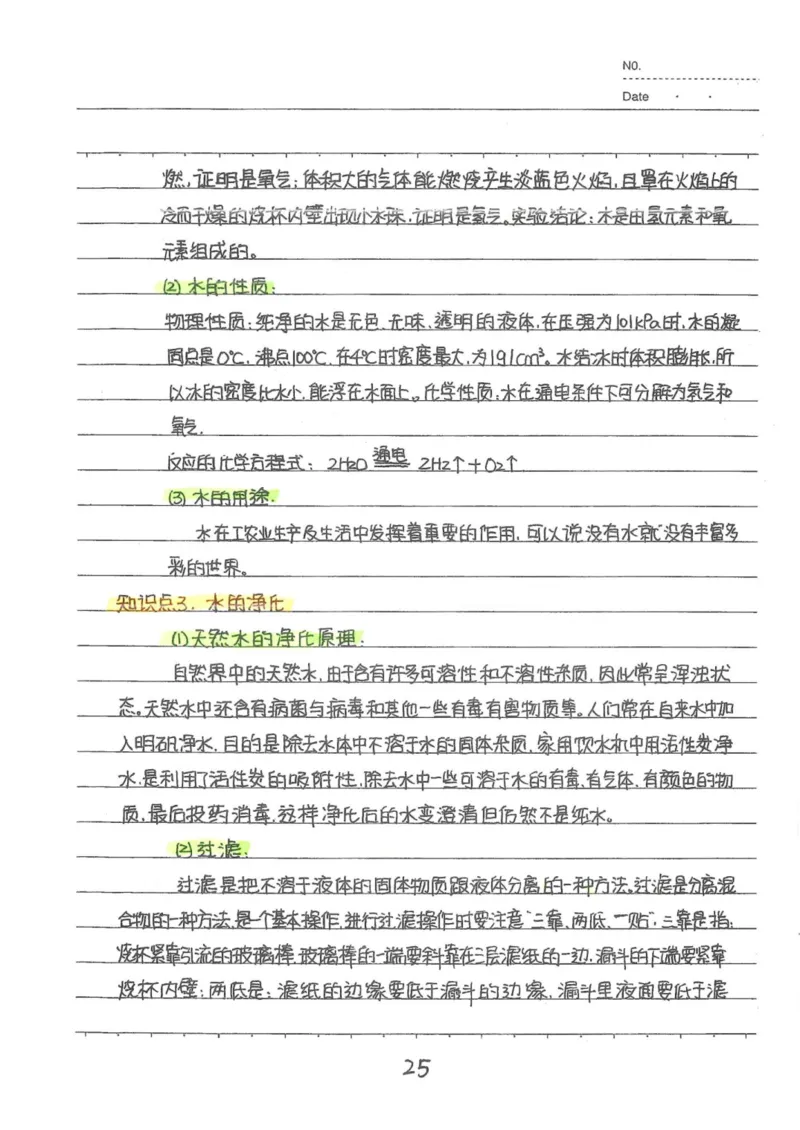 NO.
Date
燃,证明是氧气;体积大的气体能燃烧产生淡蓝色火焰,且罩在火焰上的
冷而干燥的烧杯内壁出现小水珠,证明是氢气。实验结论:水是由氢元素和氧
元素组成的。
(2) 水的性质:
物理性质:纯净的水是无色、无味、透明的液体,在压强为101kPa时,水的凝
固点是0℃,沸点100℃,在4℃时密度最大,为1g/cm³。水结冰时体积膨胀,所
以冰的密度比水小,能浮在水面上。化学性质:水在通电条件下可分解为氢气和
氧气.
反应的化学方程式: 2H2O 通电 2H2↑+O2↑
(3) 水的用途.
水在工农业生产及生活中发挥着重要的作用,可以说没有水就没有丰富多
彩的世界。
知识点3. 水的净化
(1)天然水的净化原理:
自然界中的天然水,由于含有许多可溶性和不溶性杂质,因此常呈浑浊状
态。天然水中还含有病菌与病毒和其他一些有毒有害物质等。人们常在自来水中加
入明矾净水,目的是除去水体中不溶于水的固体杂质,家用饮水机中用活性炭净
水,是利用了活性炭的吸附性,除去水中一些可溶于水的有毒、有气体,有颜色的物
质,最后投药消毒,这样净化后的水变澄清但仍然不是纯水。
(2)过滤:
过滤是把不溶于液体的固体物质跟液体分离的一种方法。过滤是分离混
合物的一种方法,是一个基本操作,进行过滤操作时要注意“三靠、两低、一贴”,三靠是指:
烧杯紧靠引流的玻璃棒,玻璃棒的一端要斜靠在三层滤纸的一边,漏斗的下端要紧靠
烧杯内壁;两低是:滤纸的边缘要低于漏斗的边缘,漏斗里液面要低于滤
25